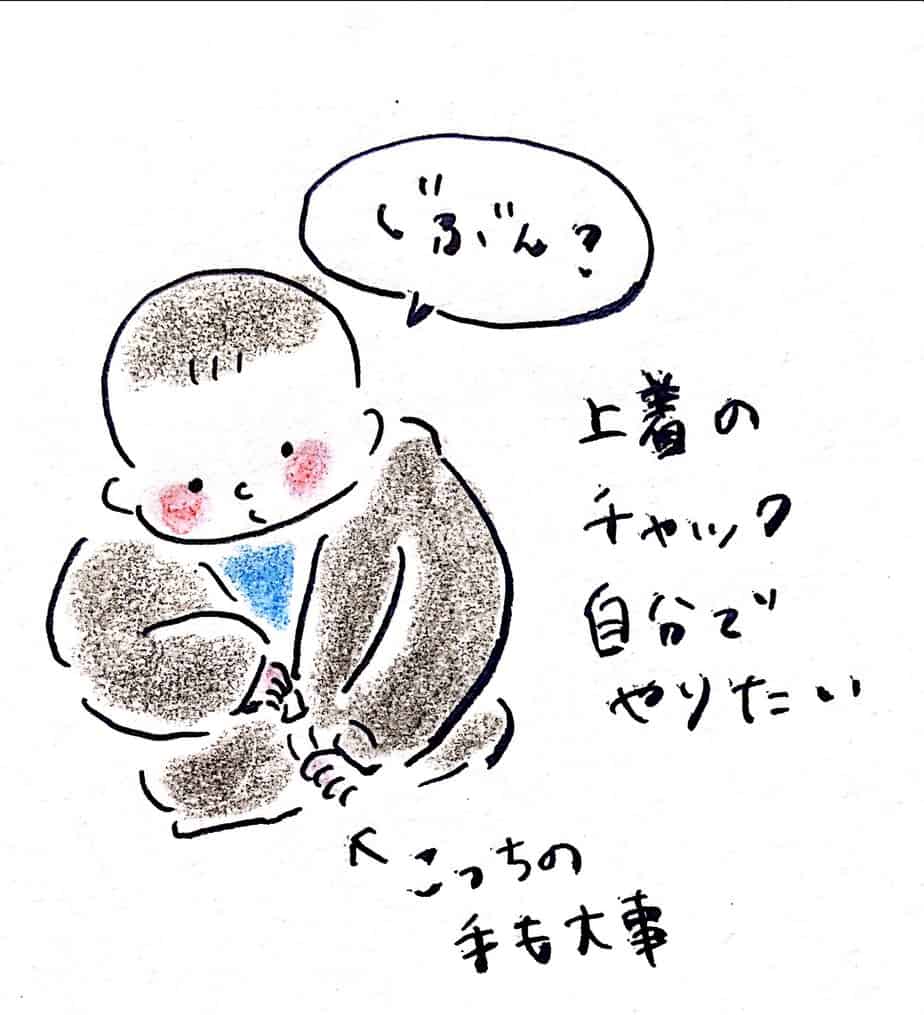 じぶん?
上着の
チャック
自分で
やりたい
こっちの
手も大事